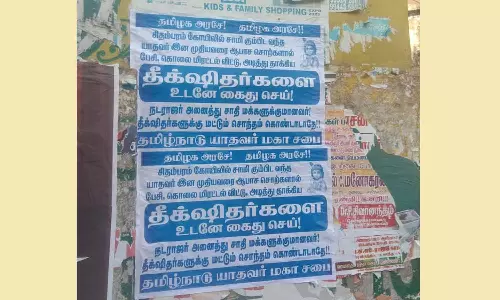 KIDS & FAMILY SHOPPING
தமிழக அரசே! தமிழக அரசே!!
சிதம்பரம் கோயிலில் சாமி கும்பிட வந்த
யாதவர் இன முதியவரை ஆபாச சொற்களால்
பேசி, கொலை மிரட்டல் விட்டு, அடித்து தாக்கிய
தீக்ஷிதர்களை
உடனே கைது செய்!
நடராஜர் அனைத்து சாதி மக்களுக்குமானவர்!
தீக்ஷிதர்களுக்கு மட்டும் சொந்தம் கொண்டாடாதே!!
தமிழ்நாடு யாதவர் மகா சபை
தமிழக அரசே! தமிழக அரசே!!
சிதம்பரம் கோயிலில் சாமி கும்பிட வந்த
யாதவர் இன முதியவரை ஆபாச சொற்களால்
பேசி, கொலை மிரட்டல் விட்டு, அடித்து தாக்கிய
தீக்ஷிதர்களை
உடனே கைது செய்!
நடராஜர் அனைத்து சாதி மக்களுக்குமானவர்!
தீக்ஷிதர்களுக்கு மட்டும் சொந்தம் கொண்டாடாதே!!
தமிழ்நாடு யாதவர் மகா சபை